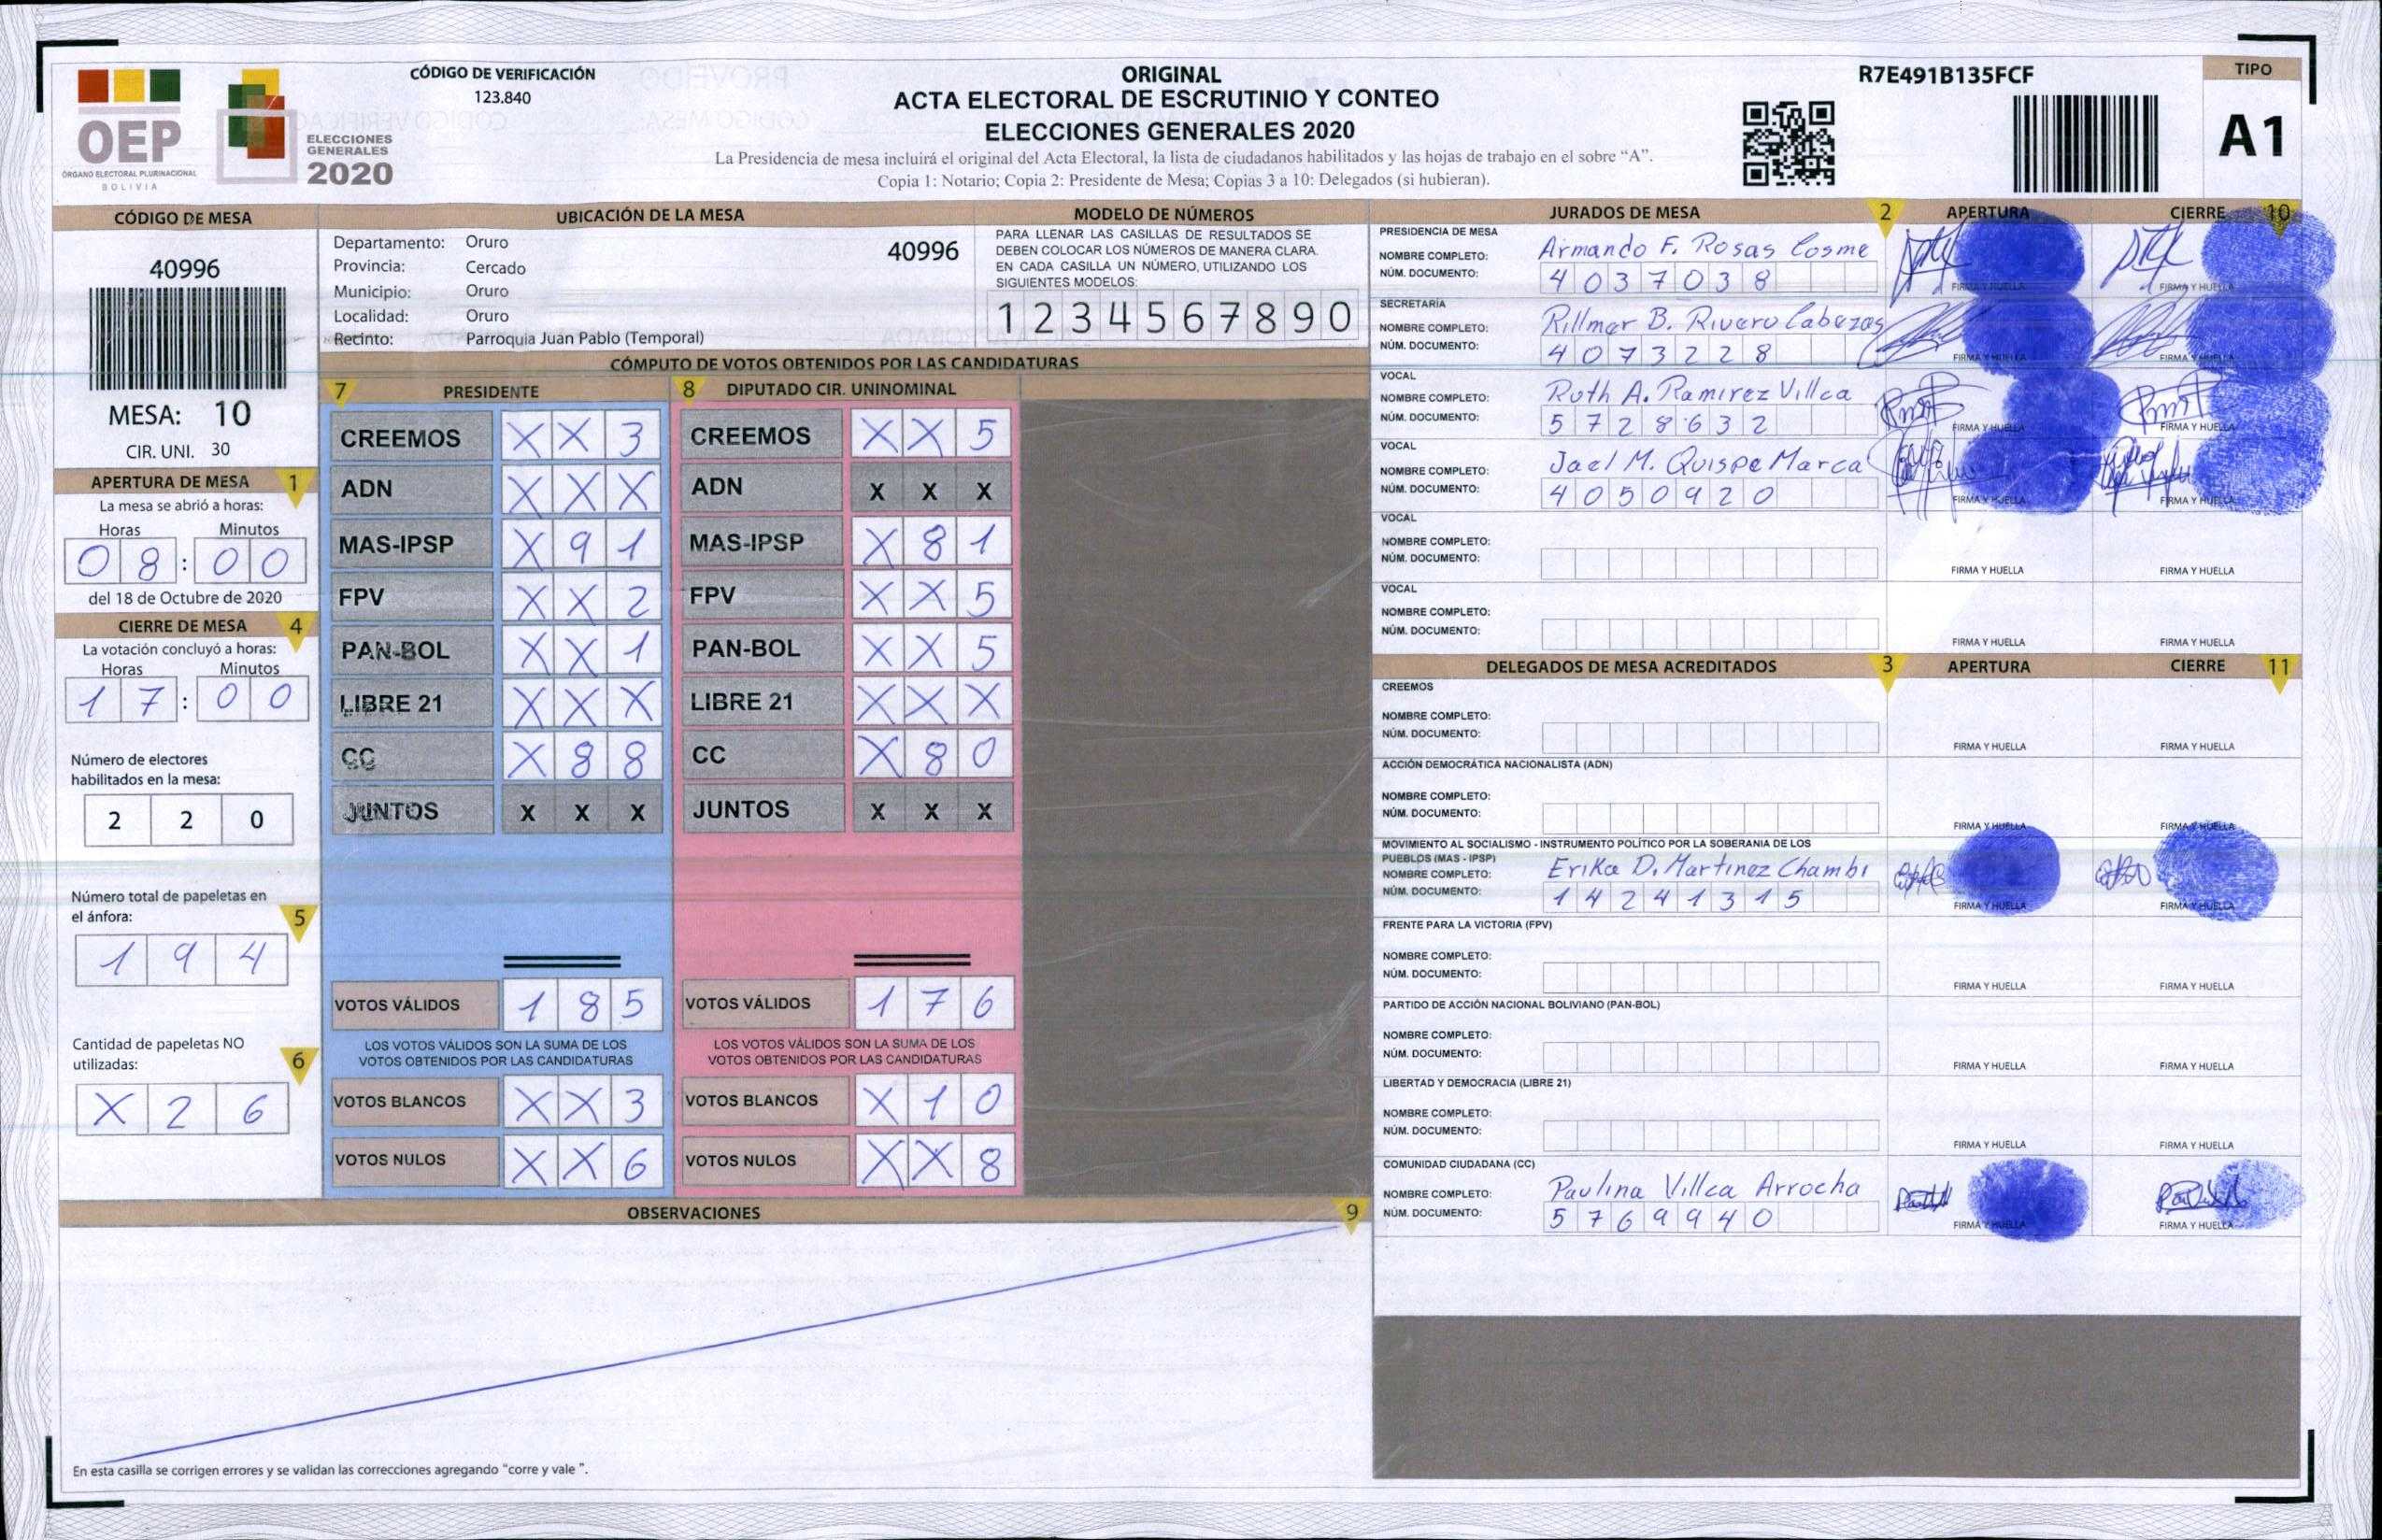 OEP
ÓRGANO ELECTORAL PLURINACIONAL
BOLIVIA
ELECCIONES
GENERALES
2020
CÓDIGO DE VERIFICACIÓN
123.840
ORIGINAL
ACTA ELECTORAL DE ESCRUTINIO Y CONTEO
ELECCIONES GENERALES 2020
La Presidencia de mesa incluirá el original del Acta Electoral, la lista de ciudadanos habilitados y las hojas de trabajo en el sobre “A”.
Copia 1: Notario; Copia 2: Presidente de Mesa; Copias 3 a 10: Delegados (si hubieran).
R7E491B135FCF
TIPO
A1
CÓDIGO DE MESA
40996
MESA: 10
CIR. UNI. 30
APERTURA DE MESA 1
La mesa se abrió a horas:
Horas Minutos
0 8 : 0 0
del 18 de Octubre de 2020
CIERRE DE MESA 4
La votación concluyó a horas:
Horas Minutos
1 7 : 0 0
Número de electores
habilitados en la mesa:
2 2 0
Número total de papeletas en
el ánfora: 5
1 9 4
Cantidad de papeletas NO
utilizadas: 6
X 2 6
UBICACIÓN DE LA MESA
Departamento: Oruro 40996
Provincia: Cercado
Municipio: Oruro
Localidad: Oruro
Recinto: Parroquia Juan Pablo (Temporal)
MODELO DE NÚMEROS
PARA LLENAR LAS CASILLAS DE RESULTADOS SE
DEBEN COLOCAR LOS NÚMEROS DE MANERA CLARA.
EN CADA CASILLA UN NÚMERO, UTILIZANDO LOS
SIGUIENTES MODELOS:
1 2 3 4 5 6 7 8 9 0
CÓMPUTO DE VOTOS OBTENIDOS POR LAS CANDIDATURAS
7 PRESIDENTE 8 DIPUTADO CIR. UNINOMINAL
CREEMOS X X 3 CREEMOS X X 5
ADN X X X ADN X X X
MAS-IPSP X 9 1 MAS-IPSP X 8 1
FPV X X 2 FPV X X 5
PAN-BOL X X 1 PAN-BOL X X 5
LIBRE 21 X X X LIBRE 21 X X X
CC X 8 8 CC X 8 0
JUNTOS X X X JUNTOS X X X
VOTOS VÁLIDOS 1 8 5 VOTOS VÁLIDOS 1 7 6
LOS VOTOS VÁLIDOS SON LA SUMA DE LOS LOS VOTOS VÁLIDOS SON LA SUMA DE LOS
VOTOS OBTENIDOS POR LAS CANDIDATURAS VOTOS OBTENIDOS POR LAS CANDIDATURAS
VOTOS BLANCOS X X 3 VOTOS BLANCOS X 1 0
VOTOS NULOS X X 6 VOTOS NULOS X X 8
OBSERVACIONES 9
En esta casilla se corrigen errores y se validan las correcciones agregando “corre y vale ”.
JURADOS DE MESA 2 APERTURA CIERRE 10
PRESIDENCIA DE MESA
NOMBRE COMPLETO: Armando F. Rosas Cosme
NÚM. DOCUMENTO: 4 0 3 7 0 3 8 FIRMA Y HUELLA FIRMA Y HUELLA
SECRETARÍA
NOMBRE COMPLETO: Rillmer B. Rivero Cabezas
NÚM. DOCUMENTO: 4 0 7 3 2 2 8 FIRMA Y HUELLA FIRMA Y HUELLA
VOCAL
NOMBRE COMPLETO: Ruth A. Ramirez Villca
NÚM. DOCUMENTO: 5 7 2 8 6 3 2 FIRMA Y HUELLA FIRMA Y HUELLA
VOCAL
NOMBRE COMPLETO: Jael M. Quispe Marca
NÚM. DOCUMENTO: 4 0 5 0 9 2 0 FIRMA Y HUELLA FIRMA Y HUELLA
VOCAL
NOMBRE COMPLETO:
NÚM. DOCUMENTO: FIRMA Y HUELLA FIRMA Y HUELLA
VOCAL
NOMBRE COMPLETO:
NÚM. DOCUMENTO: FIRMA Y HUELLA FIRMA Y HUELLA
DELEGADOS DE MESA ACREDITADOS 3 APERTURA CIERRE 11
CREEMOS
NOMBRE COMPLETO:
NÚM. DOCUMENTO: FIRMA Y HUELLA FIRMA Y HUELLA
ACCIÓN DEMOCRÁTICA NACIONALISTA (ADN)
NOMBRE COMPLETO:
NÚM. DOCUMENTO: FIRMA Y HUELLA FIRMA Y HUELLA
MOVIMIENTO AL SOCIALISMO - INSTRUMENTO POLÍTICO POR LA SOBERANIA DE LOS
PUEBLOS (MAS - IPSP)
NOMBRE COMPLETO: Erika D. Martinez Chambi
NÚM. DOCUMENTO: 1 4 2 4 1 3 1 5 FIRMA Y HUELLA FIRMA Y HUELLA
FRENTE PARA LA VICTORIA (FPV)
NOMBRE COMPLETO:
NÚM. DOCUMENTO: FIRMA Y HUELLA FIRMA Y HUELLA
PARTIDO DE ACCIÓN NACIONAL BOLIVIANO (PAN-BOL)
NOMBRE COMPLETO:
NÚM. DOCUMENTO: FIRMA Y HUELLA FIRMA Y HUELLA
LIBERTAD Y DEMOCRACIA (LIBRE 21)
NOMBRE COMPLETO:
NÚM. DOCUMENTO: FIRMA Y HUELLA FIRMA Y HUELLA
COMUNIDAD CIUDADANA (CC)
NOMBRE COMPLETO: Paulina Villca Arrocha
NÚM. DOCUMENTO: 5 7 6 9 9 4 0 FIRMA Y HUELLA FIRMA Y HUELLA